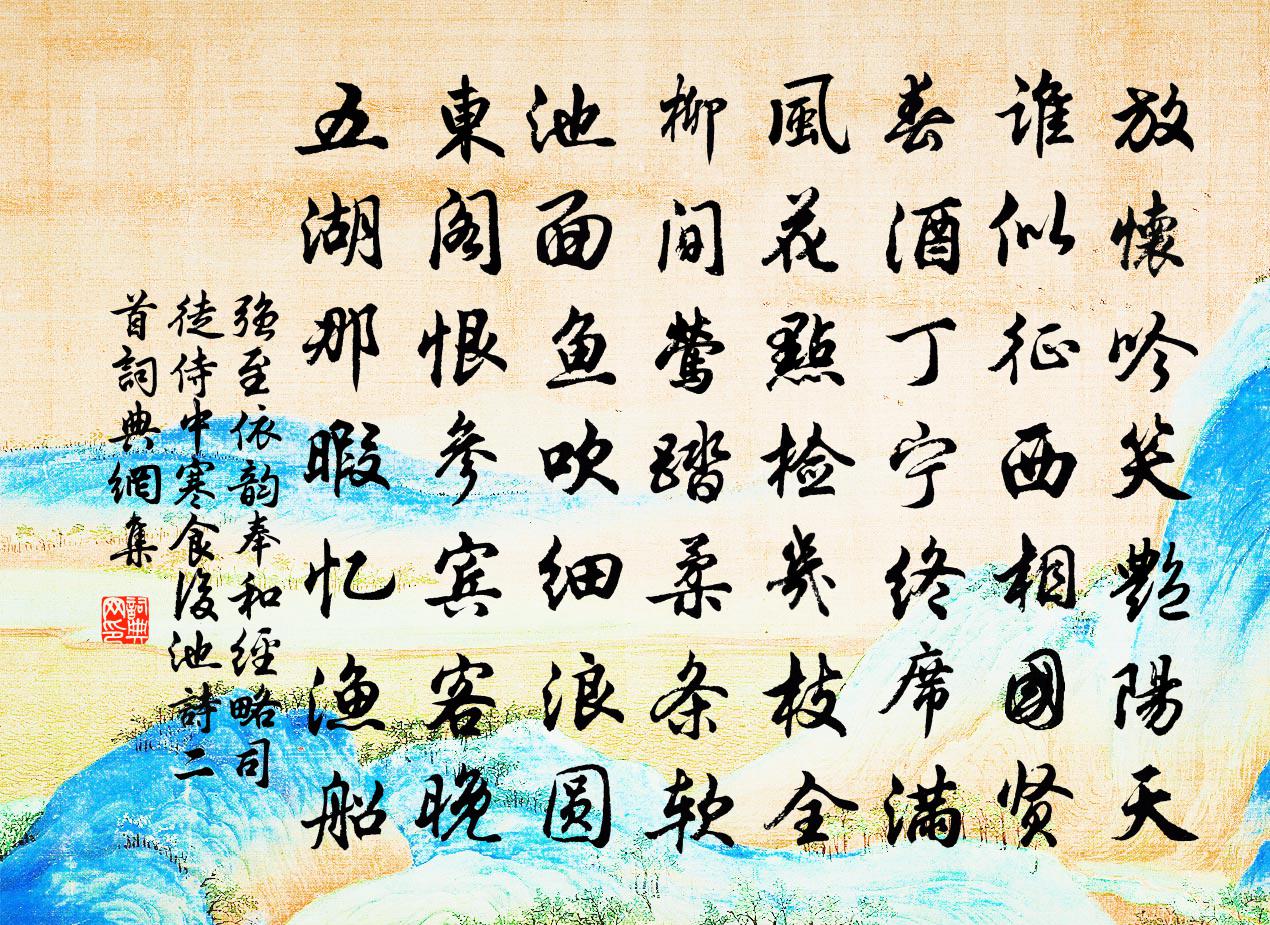 放懷吟笑艷陽天
谁似征西相國贤
春酒丁宁终席满
風花點检幾枝全
柳间莺踏柔条软
池面鱼吹细浪圆
東阁恨參宾客晚
五湖那暇忆渔船
強至依韵奉和經略司
徒侍中寒食後池詩二
首詞典網集
詞典